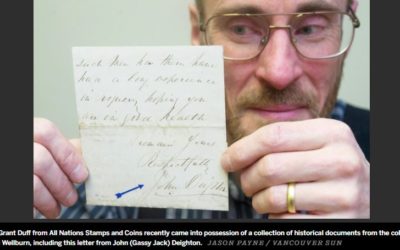 such men has them have
had a long experience
in
hoping you
are in good health
I remain yours
Respectfull
John Deighton
Grant Duff from All Nations Stamps and Coins recently came into possession of a collection of historical documents from the col
Wellburn, including this letter from John (Gassy Jack) Deighton. JASON PAYNE / VANCOUVER SUN